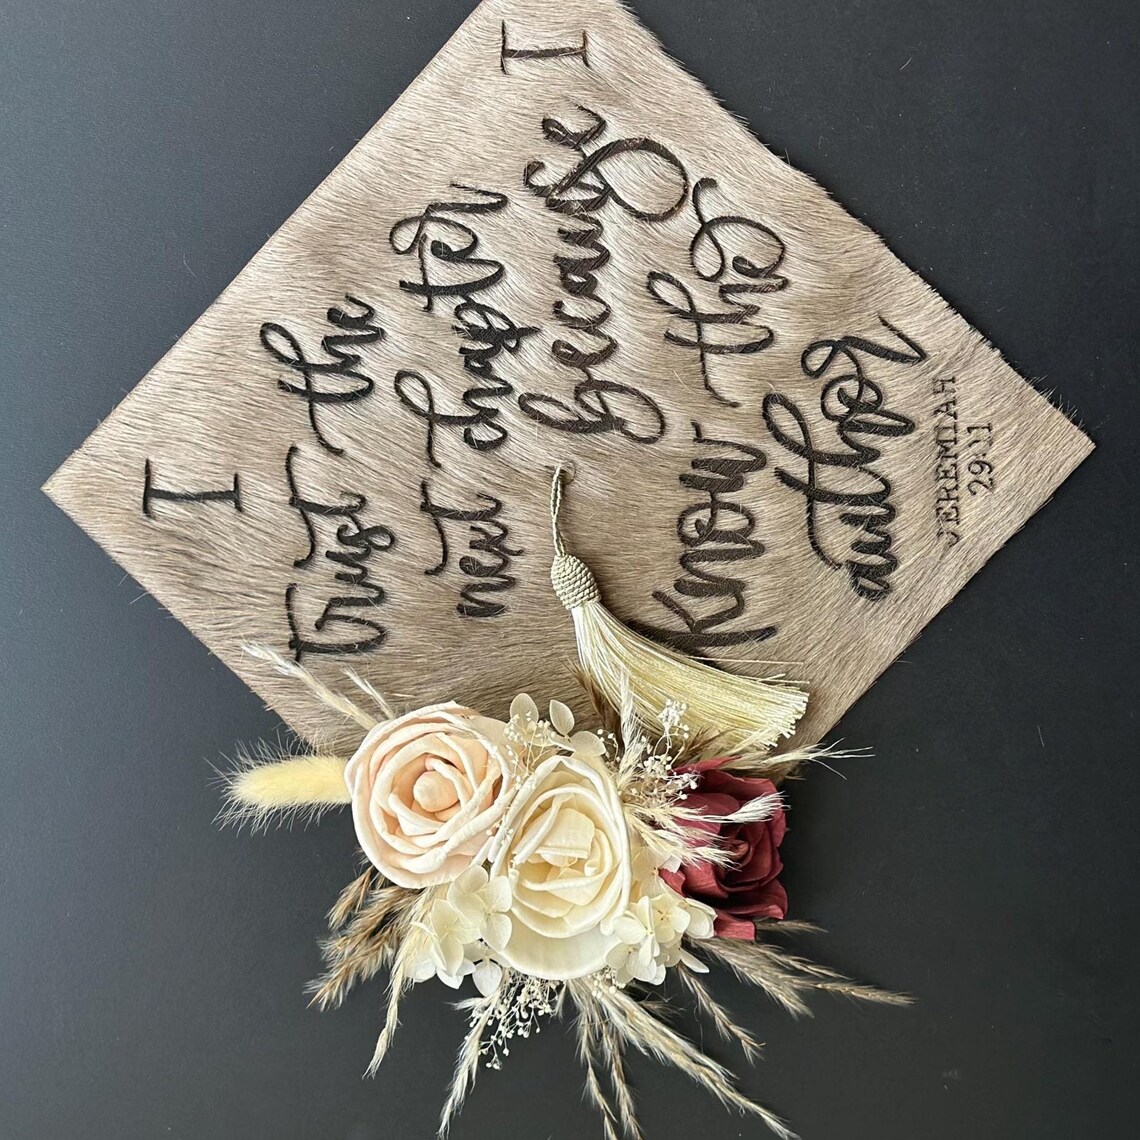 I
trust the
next chapter
because I
know the
author
JEREMIAH
29:11